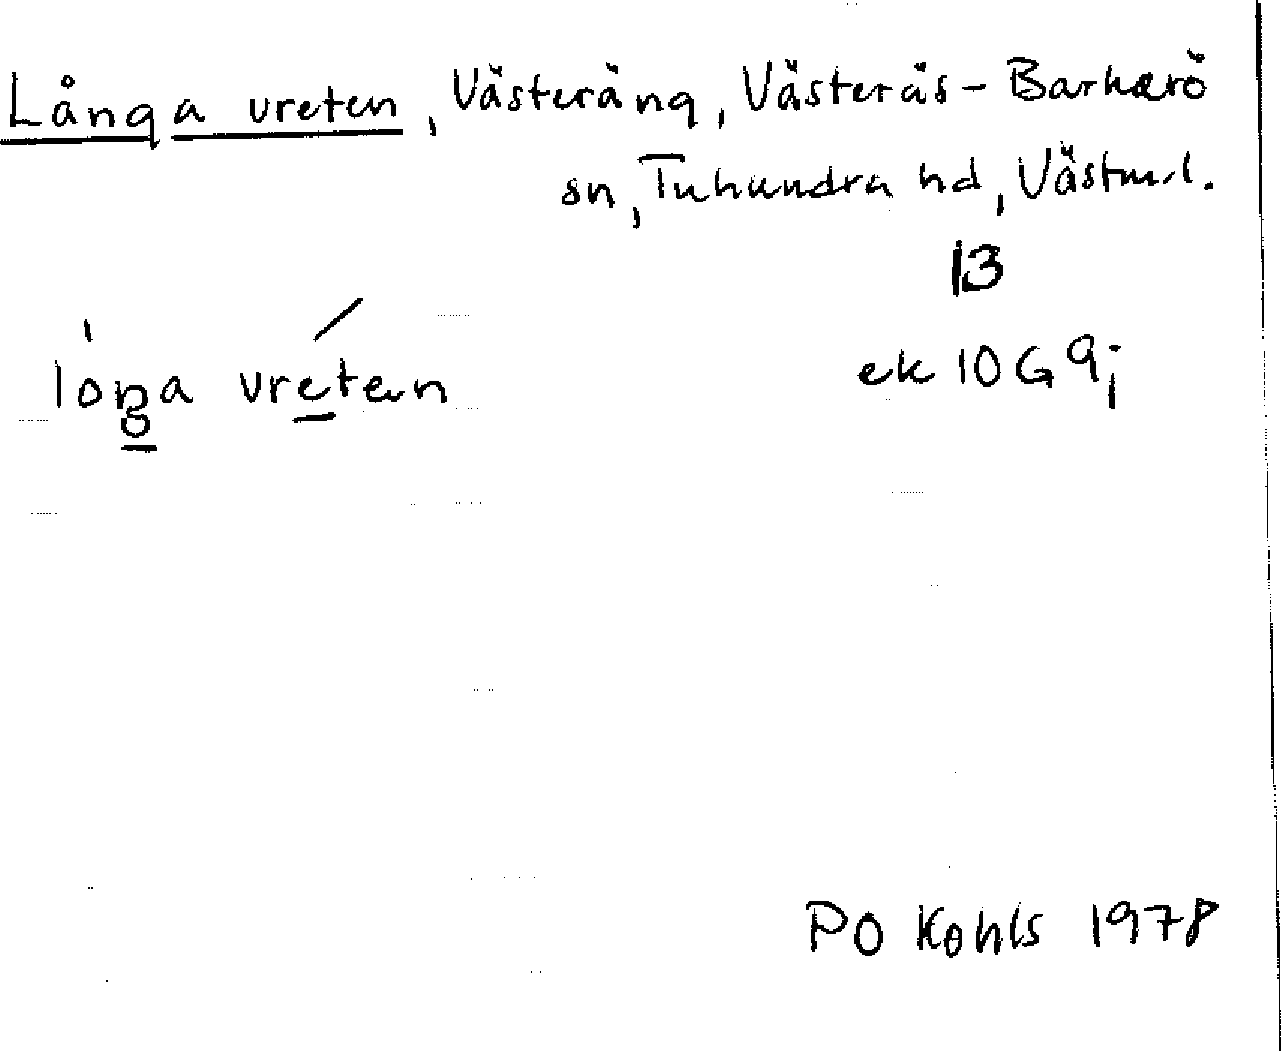 Långa vreten, Västeräng, Västerås-Barkarö
sn, Tuhundra hd, Västml.
13
loŋa vreten
ek 10G 9j
PO Kohls 1978